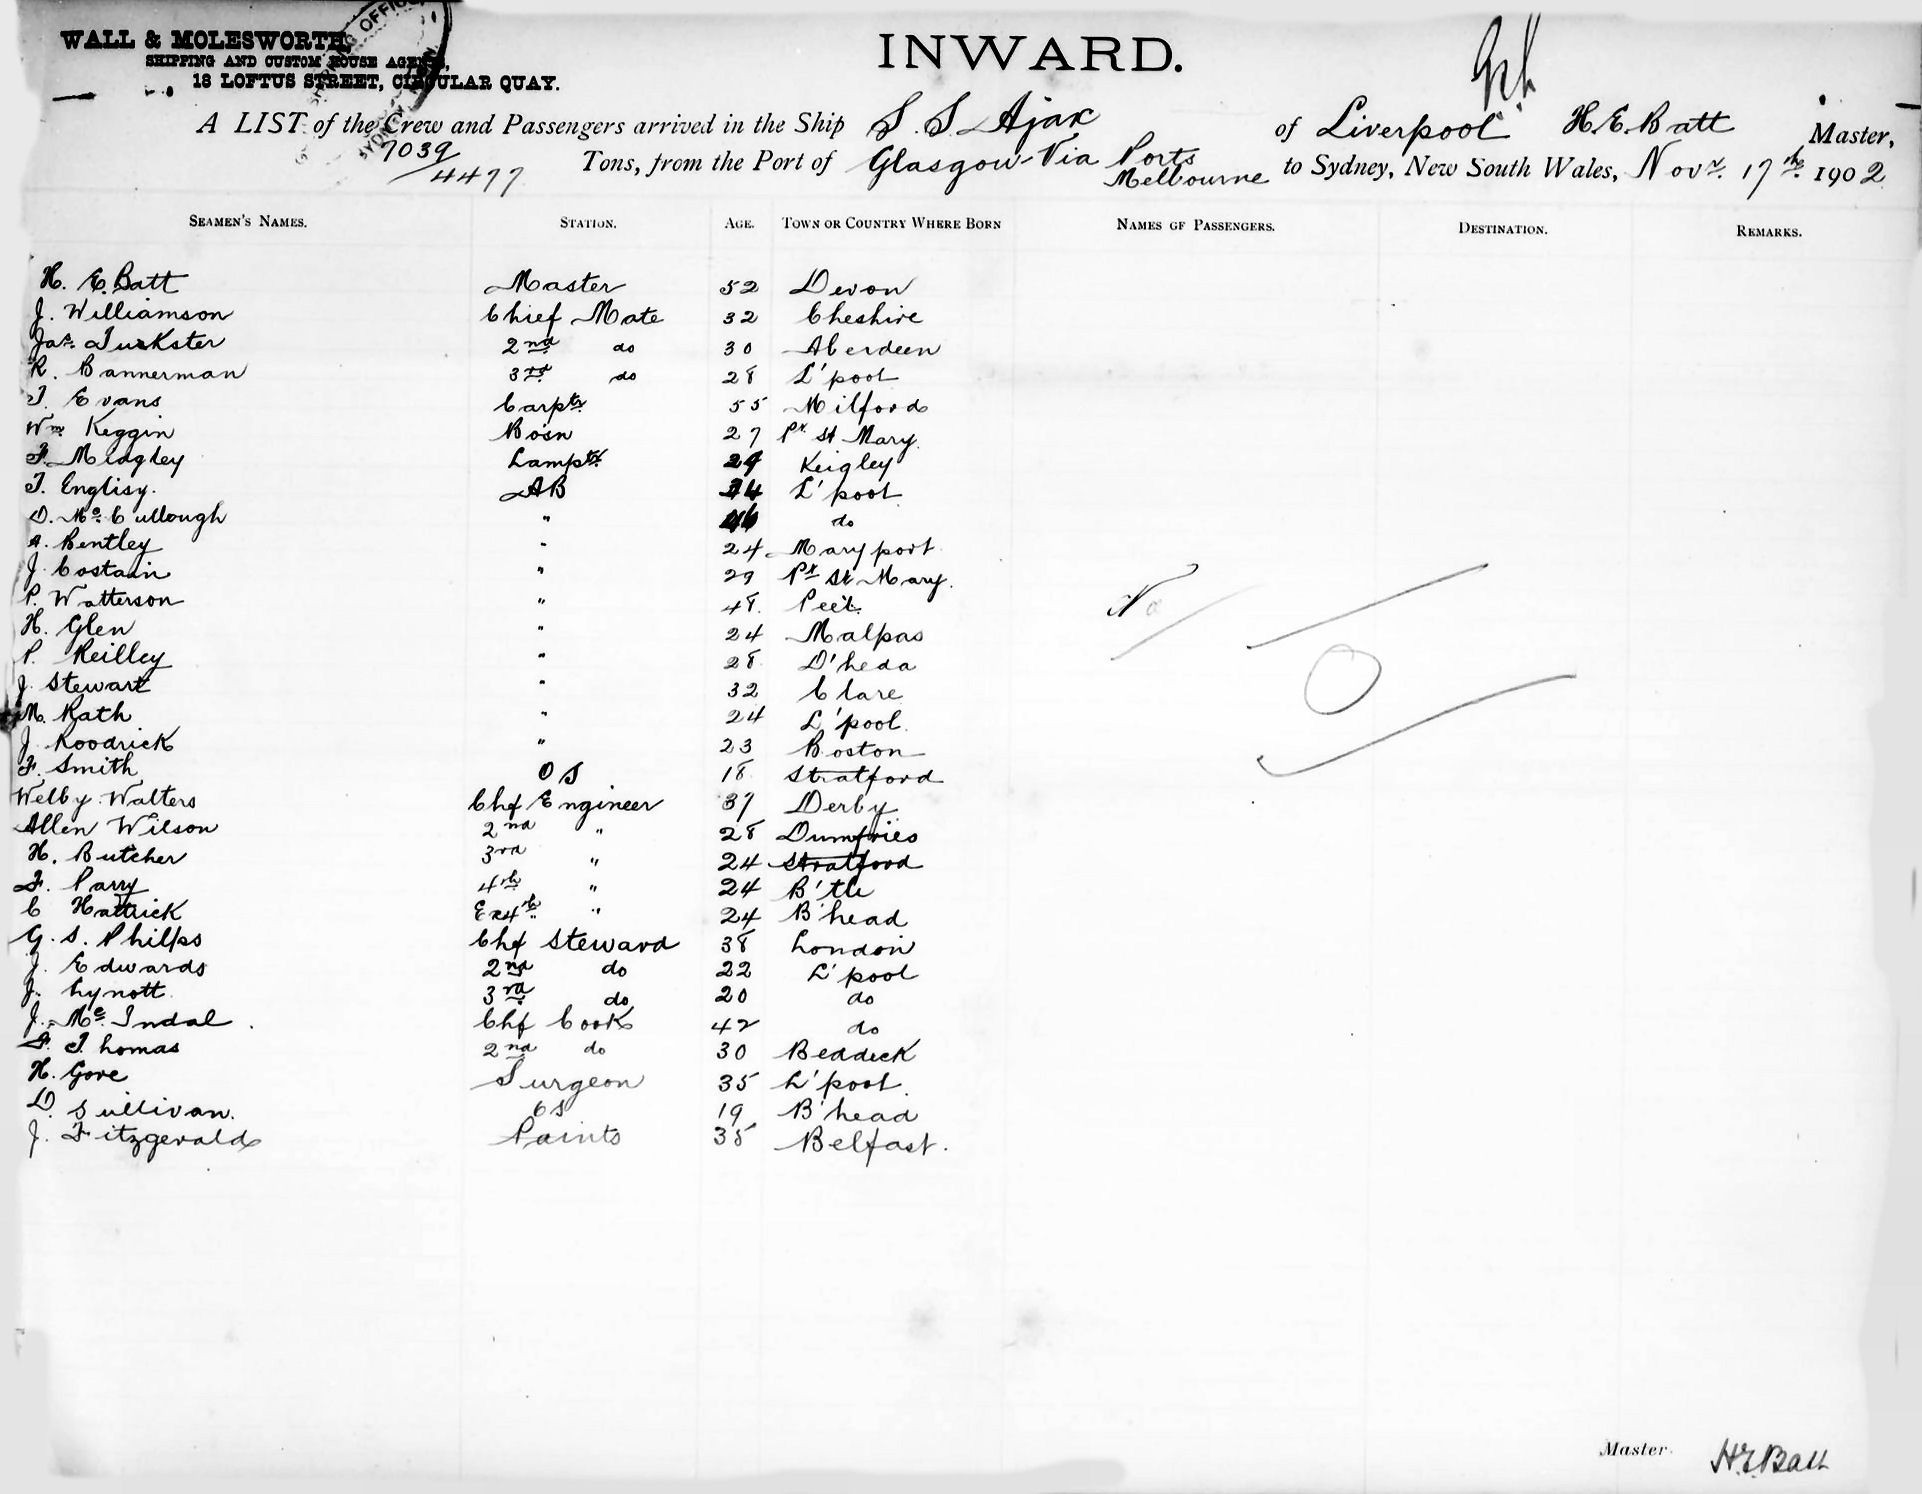 WALL & MOLESWORTH,
SHIPPING AND CUSTOM HOUSE AGENTS,
18 LOFTUS STREET, CIRCULAR QUAY.
INWARD.
A LIST of the Crew and Passengers arrived in the Ship S. S. Ajax of Liverpool H. E. Batt Master,
7039/4477 Tons, from the Port of Glasgow Via Ports Melbourne to Sydney, New South Wales, Novr. 17th. 1902
SEAMEN'S NAMES. STATION. AGE. TOWN OR COUNTRY WHERE BORN NAMES OF PASSENGERS. DESTINATION. REMARKS.
H. E. Batt Master 52 Devon
J. Williamson Chief Mate 32 Cheshire
Jas. 2nd do 30 Aberdeen
R. Bannerman 3rd do 28 L'pool
T. Evans Carptr 55 Milford
Wm Keggin Bosn 27 Pt St Mary
F. Midgley Lamptr 29 Keigley
T. Englisy. AB L'pool
D. Mc Cullough " do
A. Bentley " 24 Maryport
J. Costain " 29 Pt St Mary.
P. Watterson " 48. Peel.
H. Glen " 24 Malpas
P. Reilley " 28 D'heda
J. Stewart " 32 Clare
M. Rath " 24 L'pool.
J. Roodrick " 23 Boston
F. Smith O S 18 Stratford
Welby Walters Chf Engineer 37 Derby
Allen Wilson 2nd " 28 Dumfries
H. Butcher 3rd " 24 Stratford
F. Parry 4th " 24 B'tle
C Hattrick Ex 4th " 24 B'head
G. S. Philps Chf Steward 38 London
J. Edwards 2nd do 22 L'pool
J. Lynott 3rd do 20 do
J. Mc Indal. Chf Cook 42 do
F. Thomas 2nd do 30 Beddeck
H. Gore Surgeon 35 L'pool.
D. Sullivan. OS 19 B'head
J. Fitzgerald Paints 38 Belfast.
No
O
Master H. E. Batt